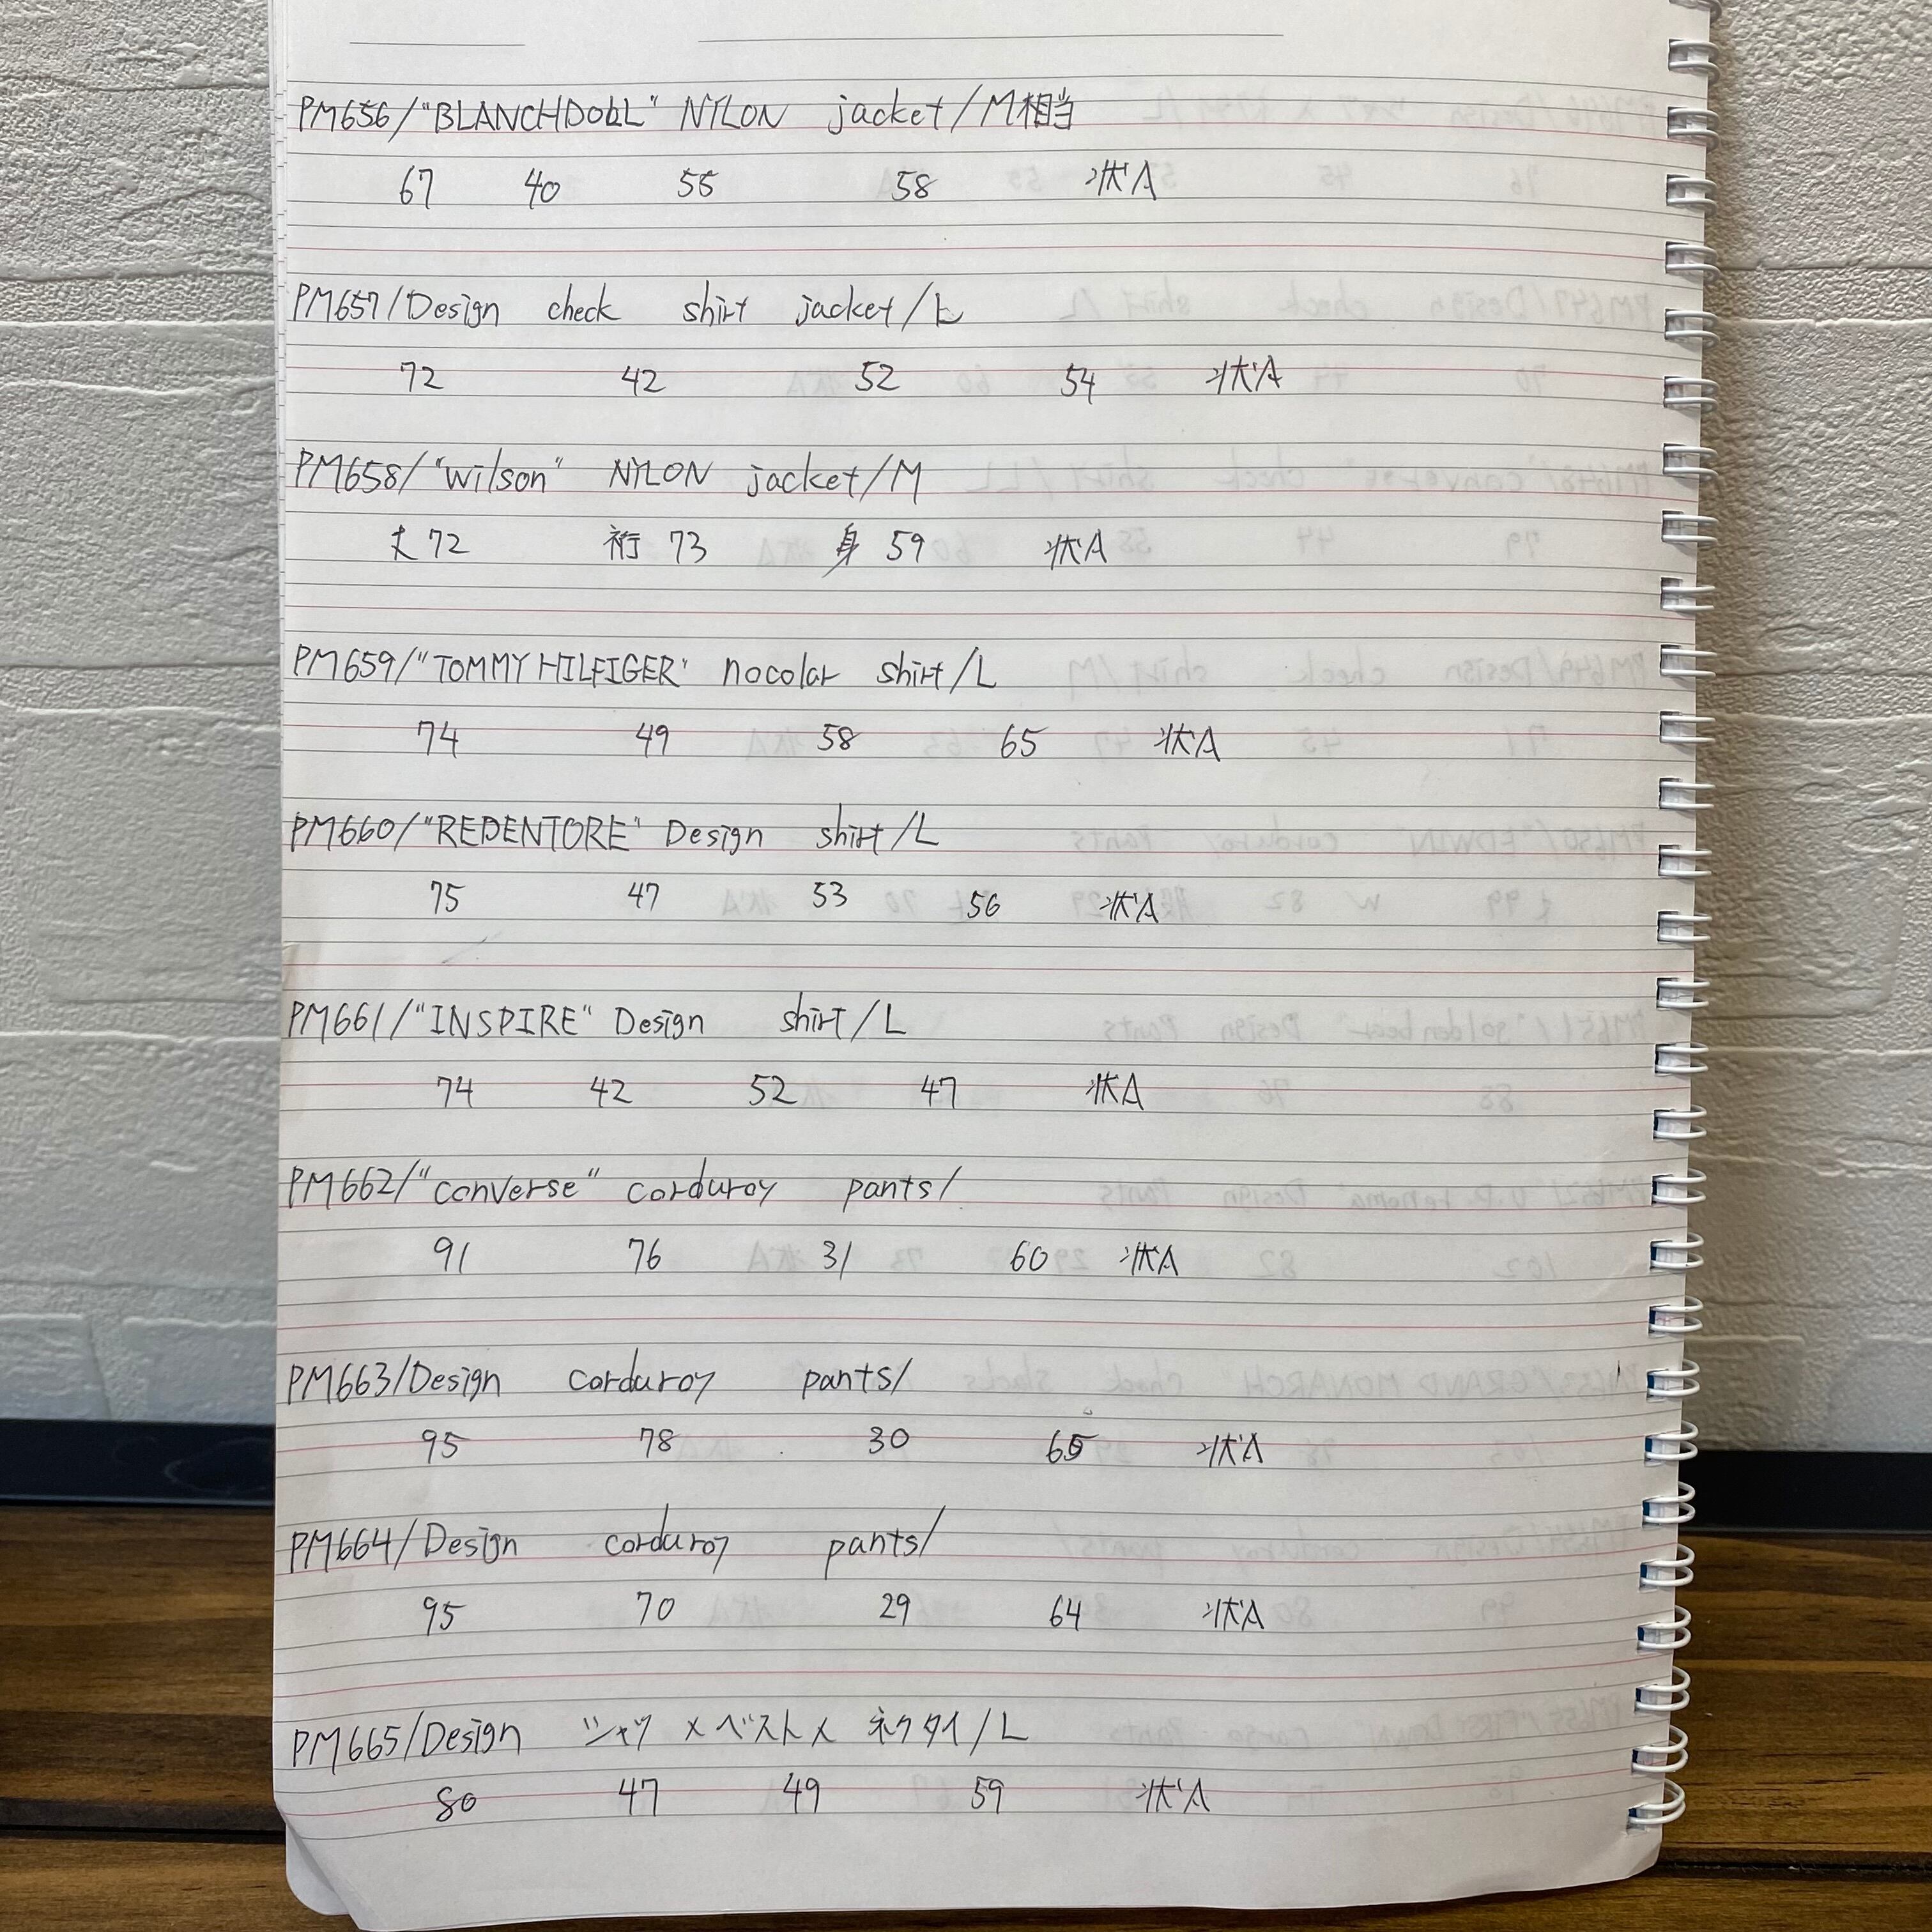 PM656/"BLANCHDOLL" NYLON jacket/M相当
67 40 55 58 状A
PM657/Design check shirt jacket/L
72 42 52 54 状A
PM658/"Wilson" NYLON jacket/M
丈72 裄73 身59 状A
PM659/"TOMMY HILFIGER" nocolar shirt/L
74 49 58 65 状A
PM660/"REDENTORE" Design shirt/L
75 47 53 56 状A
PM661/"INSPIRE" Design shirt/L
74 42 52 47 状A
PM662/"converse" corduroy pants/
91 76 31 60 状A
PM663/Design corduroy pants/
95 78 30 65 状A
PM664/Design corduroy pants/
95 70 29 64 状A
PM665/Design シャツ×ベスト×ネクタイ/L
80 47 49 59 状A